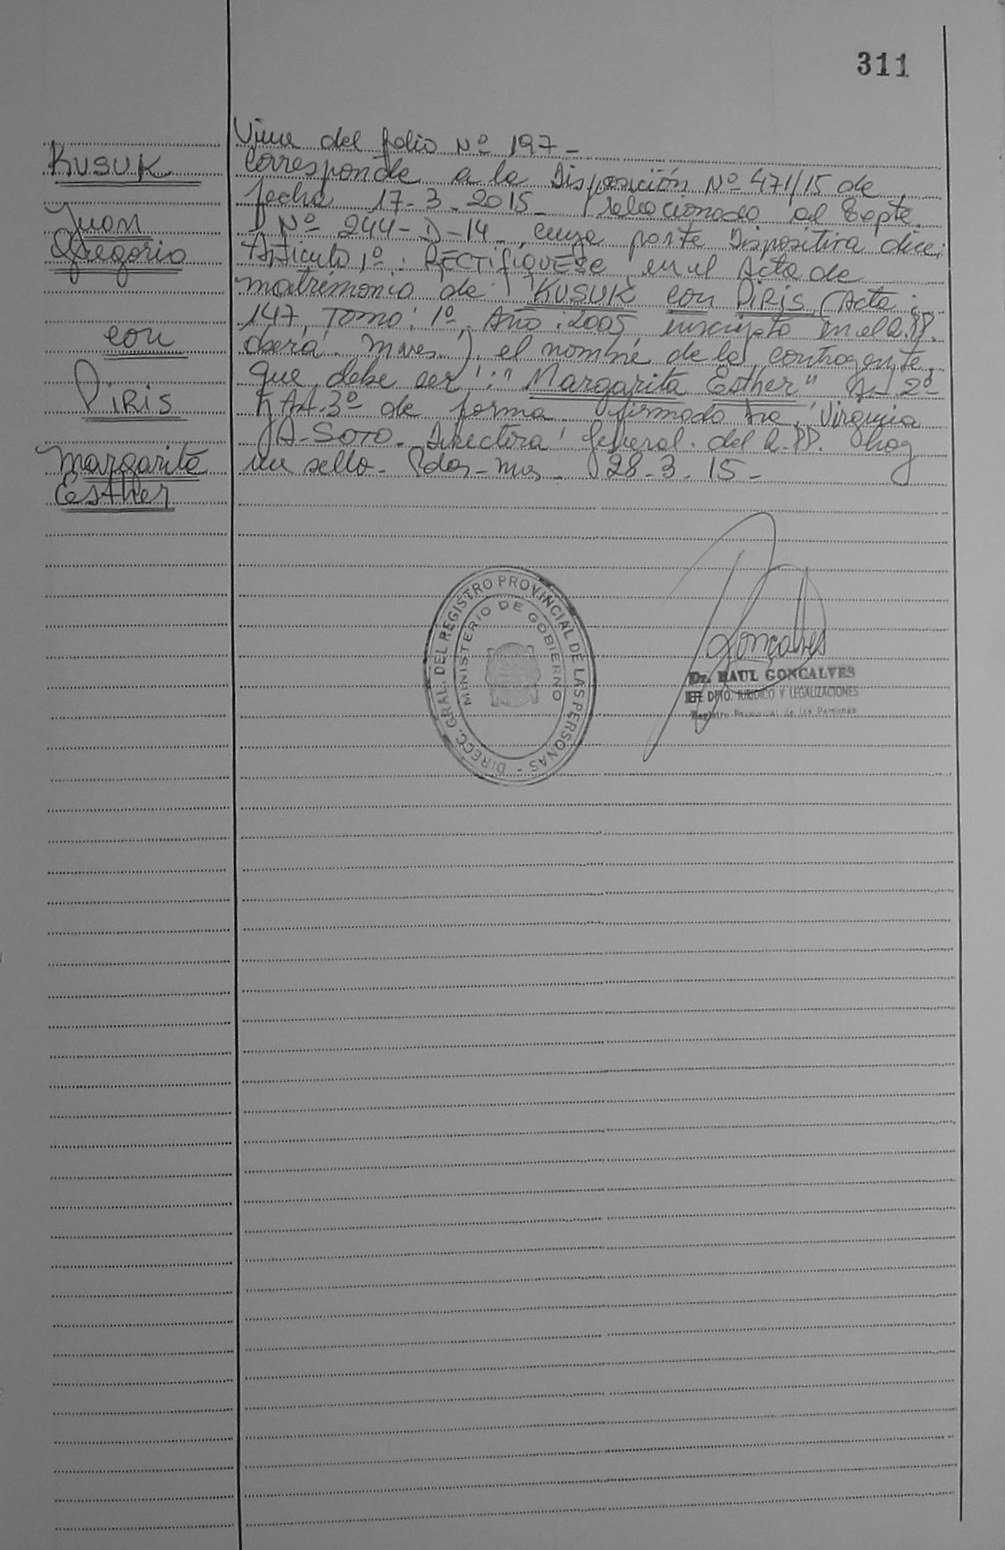 311
KUSUK
Juan
Gregorio
con
PIRIS
Margarita
Esther
Viene del folio Nº 197 -
Corresponde a la Disposición Nº 471/15 de
fecha 17-3-2015- relacionado al Expte.
Nº 244-D-14. cuya parte Dispositiva dice:
Articulo 1º: RECTIFIQUESE en el Acta de
matrimonio de KUSUK con PIRIS (Acta:
147, Tomo: 1º, Año: 2005 inscripto en el R.PP.
Oberá. Mnes.) el nombre de la contrayente
que debe ser: "Margarita Esther" Art 2º
Art 3º de forma. firmado Virginia
A-SOTO. Directora General del R.PP. hay
un sello- Pdas-Mnes. 28-3-15-
DIRECC. GRAL. DEL REGISTRO PROVINCIAL DE LAS PERSONAS -
MINISTERIO DE GOBIERNO
Goncalves
Dr. RAUL GONCALVES
JEFE DPTO. JURIDICO Y LEGALIZACIONES
Registro Provincial de las Personas